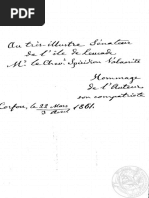 Au très illustre Sénateur
de l'île de Leucade
Mr. le Chevr Spiridion Valaoriti
Hommage
de l'Auteur
son compatriote
Corfou, le 22 Mars 1861.
3 Avril